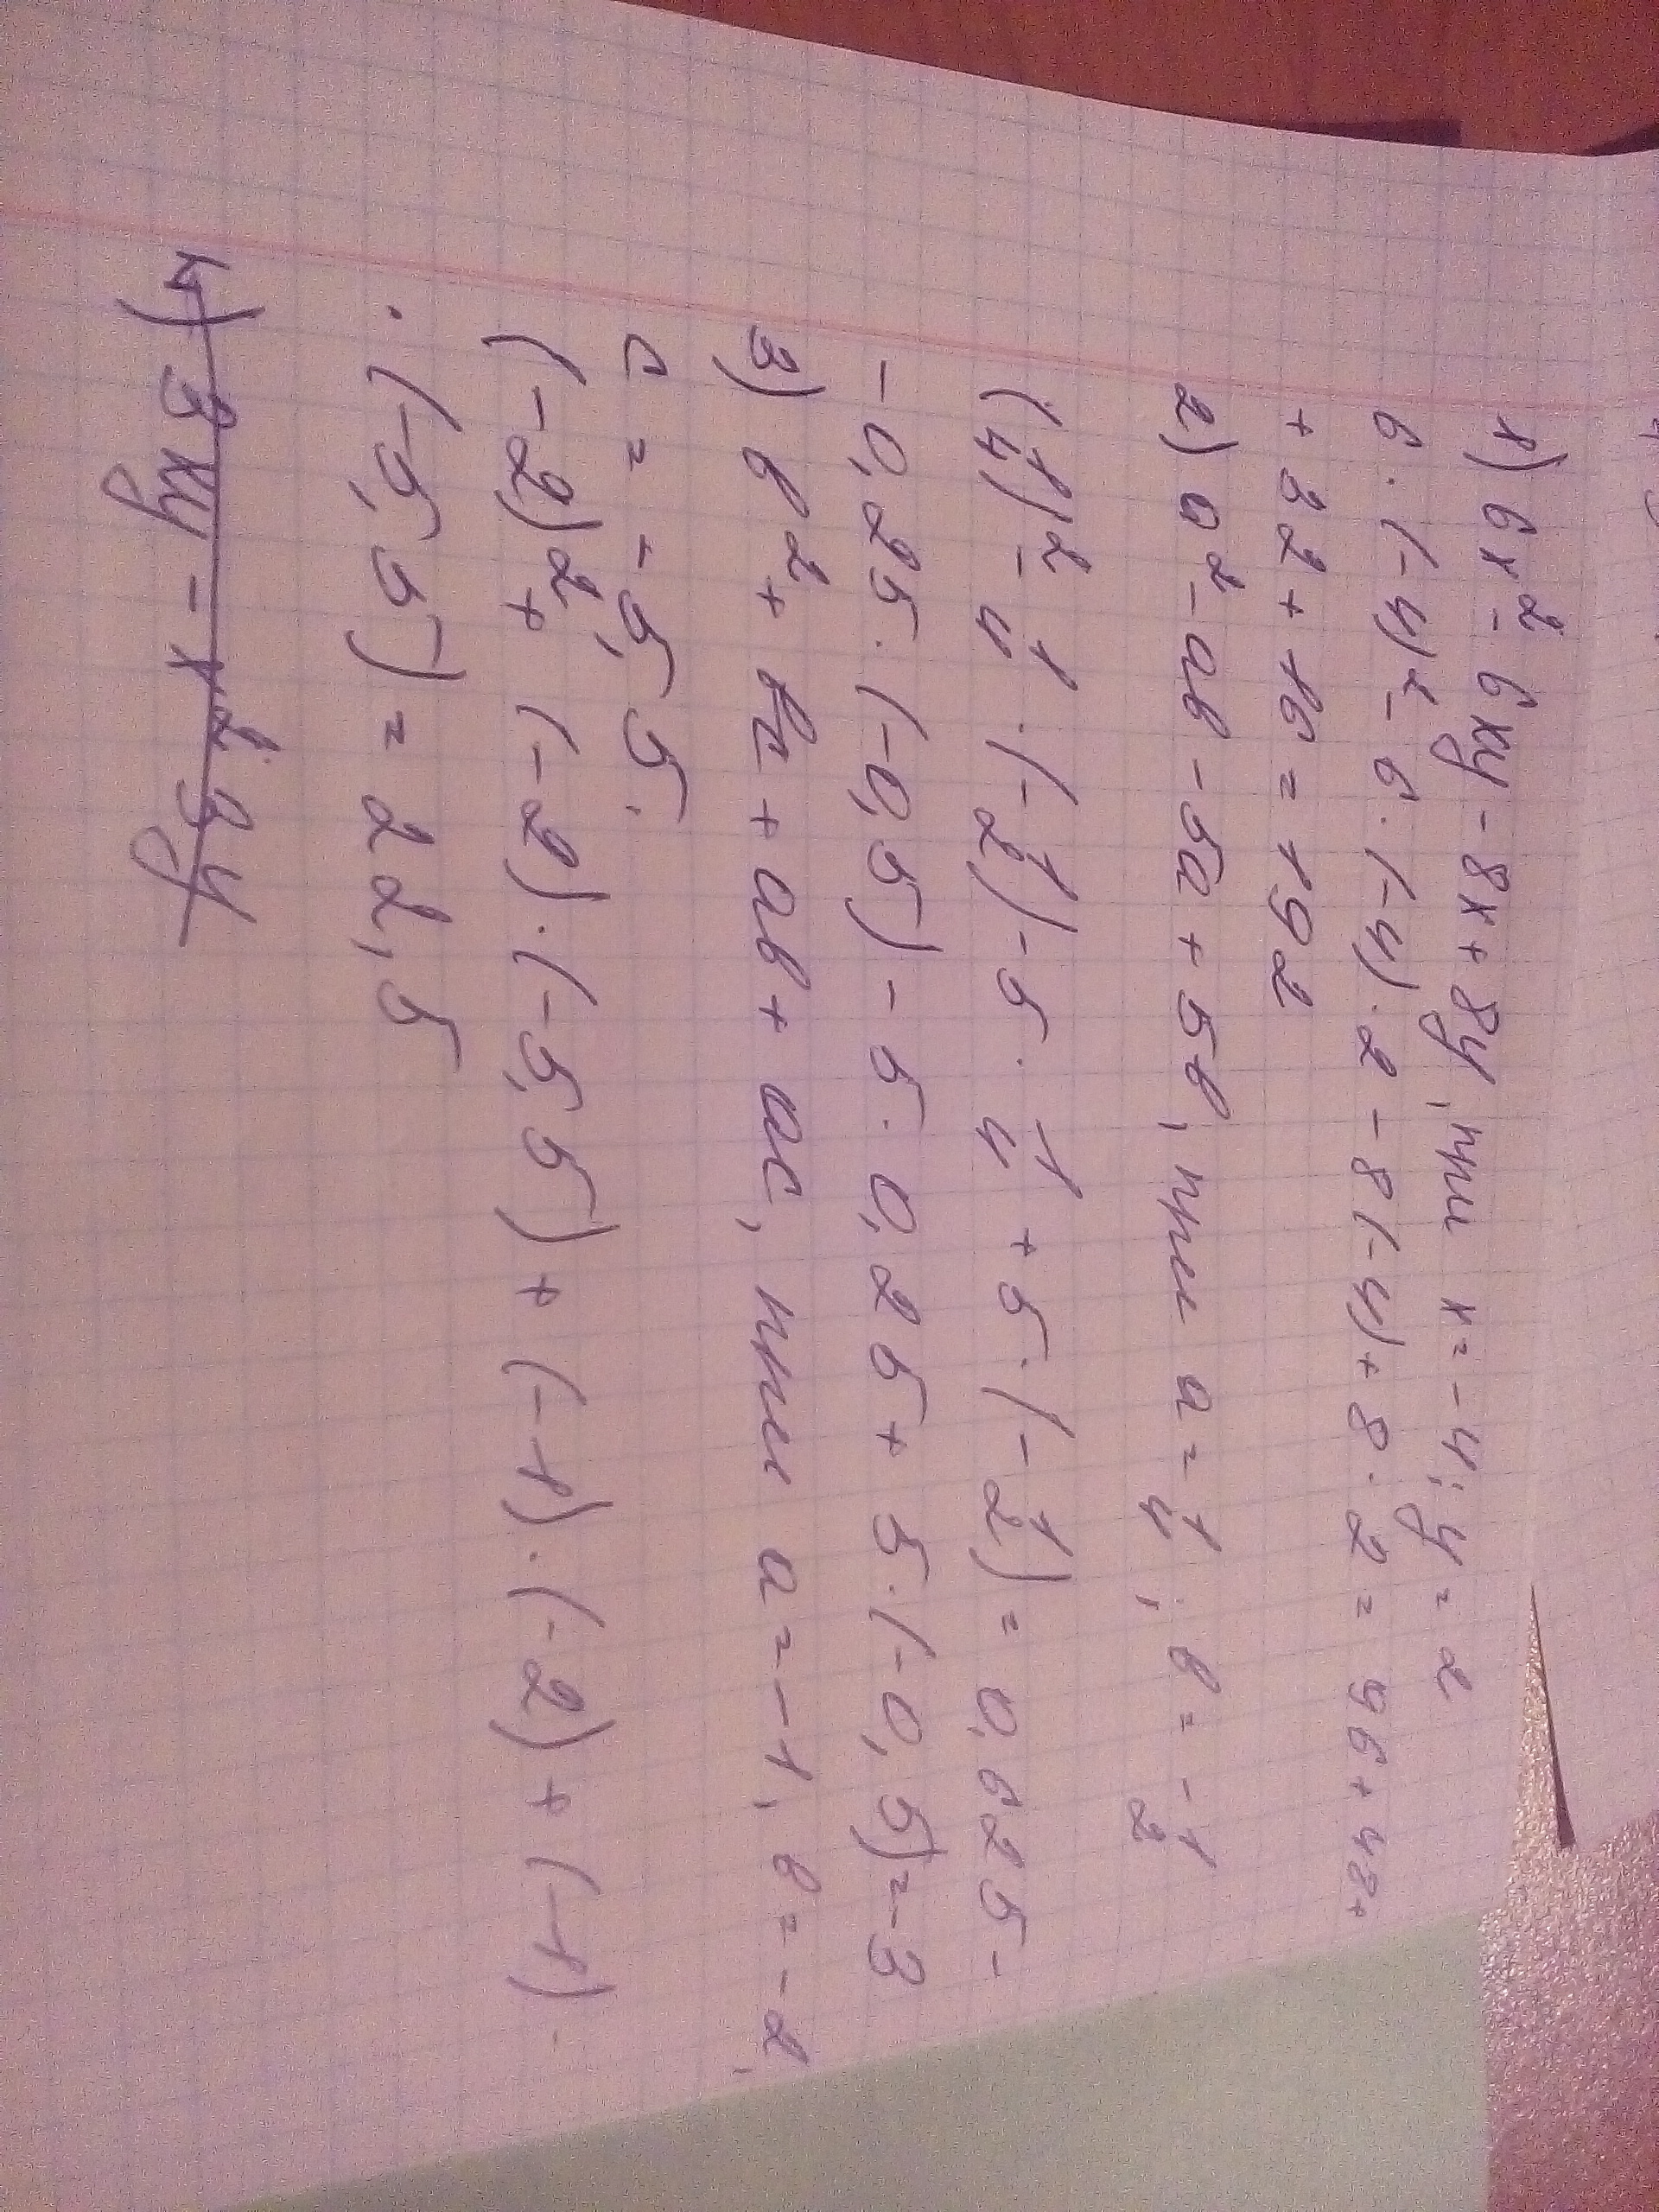 1) 6x² - 6xy - 8x + 8y, при x = -4; y = 2
6 · (-4)² - 6 · (-4) · 2 - 8(-4) + 8 · 2 = 96 + 48 +
+ 32 + 16 = 192
2) a² - ab - 5a + 5b, при a = 1/4; b = -1/2
(1/4)² - 1/4 · (-1/2) - 5 · 1/4 + 5 · (-1/2) = 0,625 -
- 0,25 · (-0,5) - 5 · 0,25 + 5 · (-0,5) = -3
3) b² + bc + ab + ac, при a = -1, b = -2,
c = -5,5.
(-2)² + (-2) · (-5,5) + (-1) · (-2) + (-1) ·
· (-5,5) = 22,5
4) 3xy - x² 3y